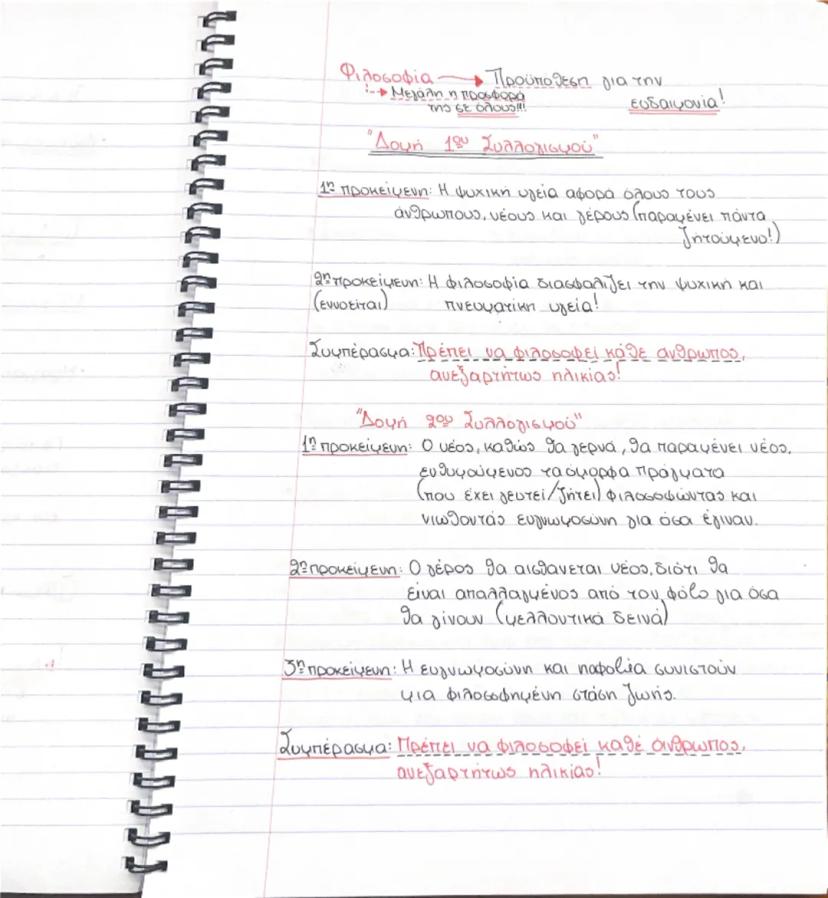 Φιλοσοφία → Προϋπόθεση για την
→ Μεγάλη η προσφορά
της σε όλους!!! ευδαιμονία!
"Δομή 1ου Συλλογισμού"
1η προκείμενη: Η ψυχική υγεία αφορά όλους τους
ανθρώπους, νέους και γέρους (παραμένει πάντα
ζητούμενο!)
2η προκείμενη: Η φιλοσοφία διασφαλίζει την ψυχική και
(εννοείται) πνευματική υγεία!
Συμπέρασμα: Πρέπει να φιλοσοφεί κάθε άνθρωπος,
ανεξαρτήτως ηλικίας!
"Δομή 2ου Συλλογισμού"
1η προκείμενη: Ο νέος, καθώς θα γερνά, θα παραμένει νέος,
ενθυμούμενος τα όμορφα πράγματα
(που έχει γευτεί/ζήσει) φιλοσοφώντας και
νιώθοντάς ευγνωμοσύνη για όσα έγιναν.
2η προκείμενη: Ο γέρος θα αισθάνεται νέος, διότι θα
είναι απαλλαγμένος από τον φόβο για όσα
θα γίνουν (μελλοντικά δεινά)
3η προκείμενη: Η ευγνωμοσύνη και η αφοβία συνιστούν
μια φιλοσοφημένη στάση ζωής.
Συμπέρασμα: Πρέπει να φιλοσοφεί καθέ άνθρωπος,
ανεξαρτήτως ηλικίας!